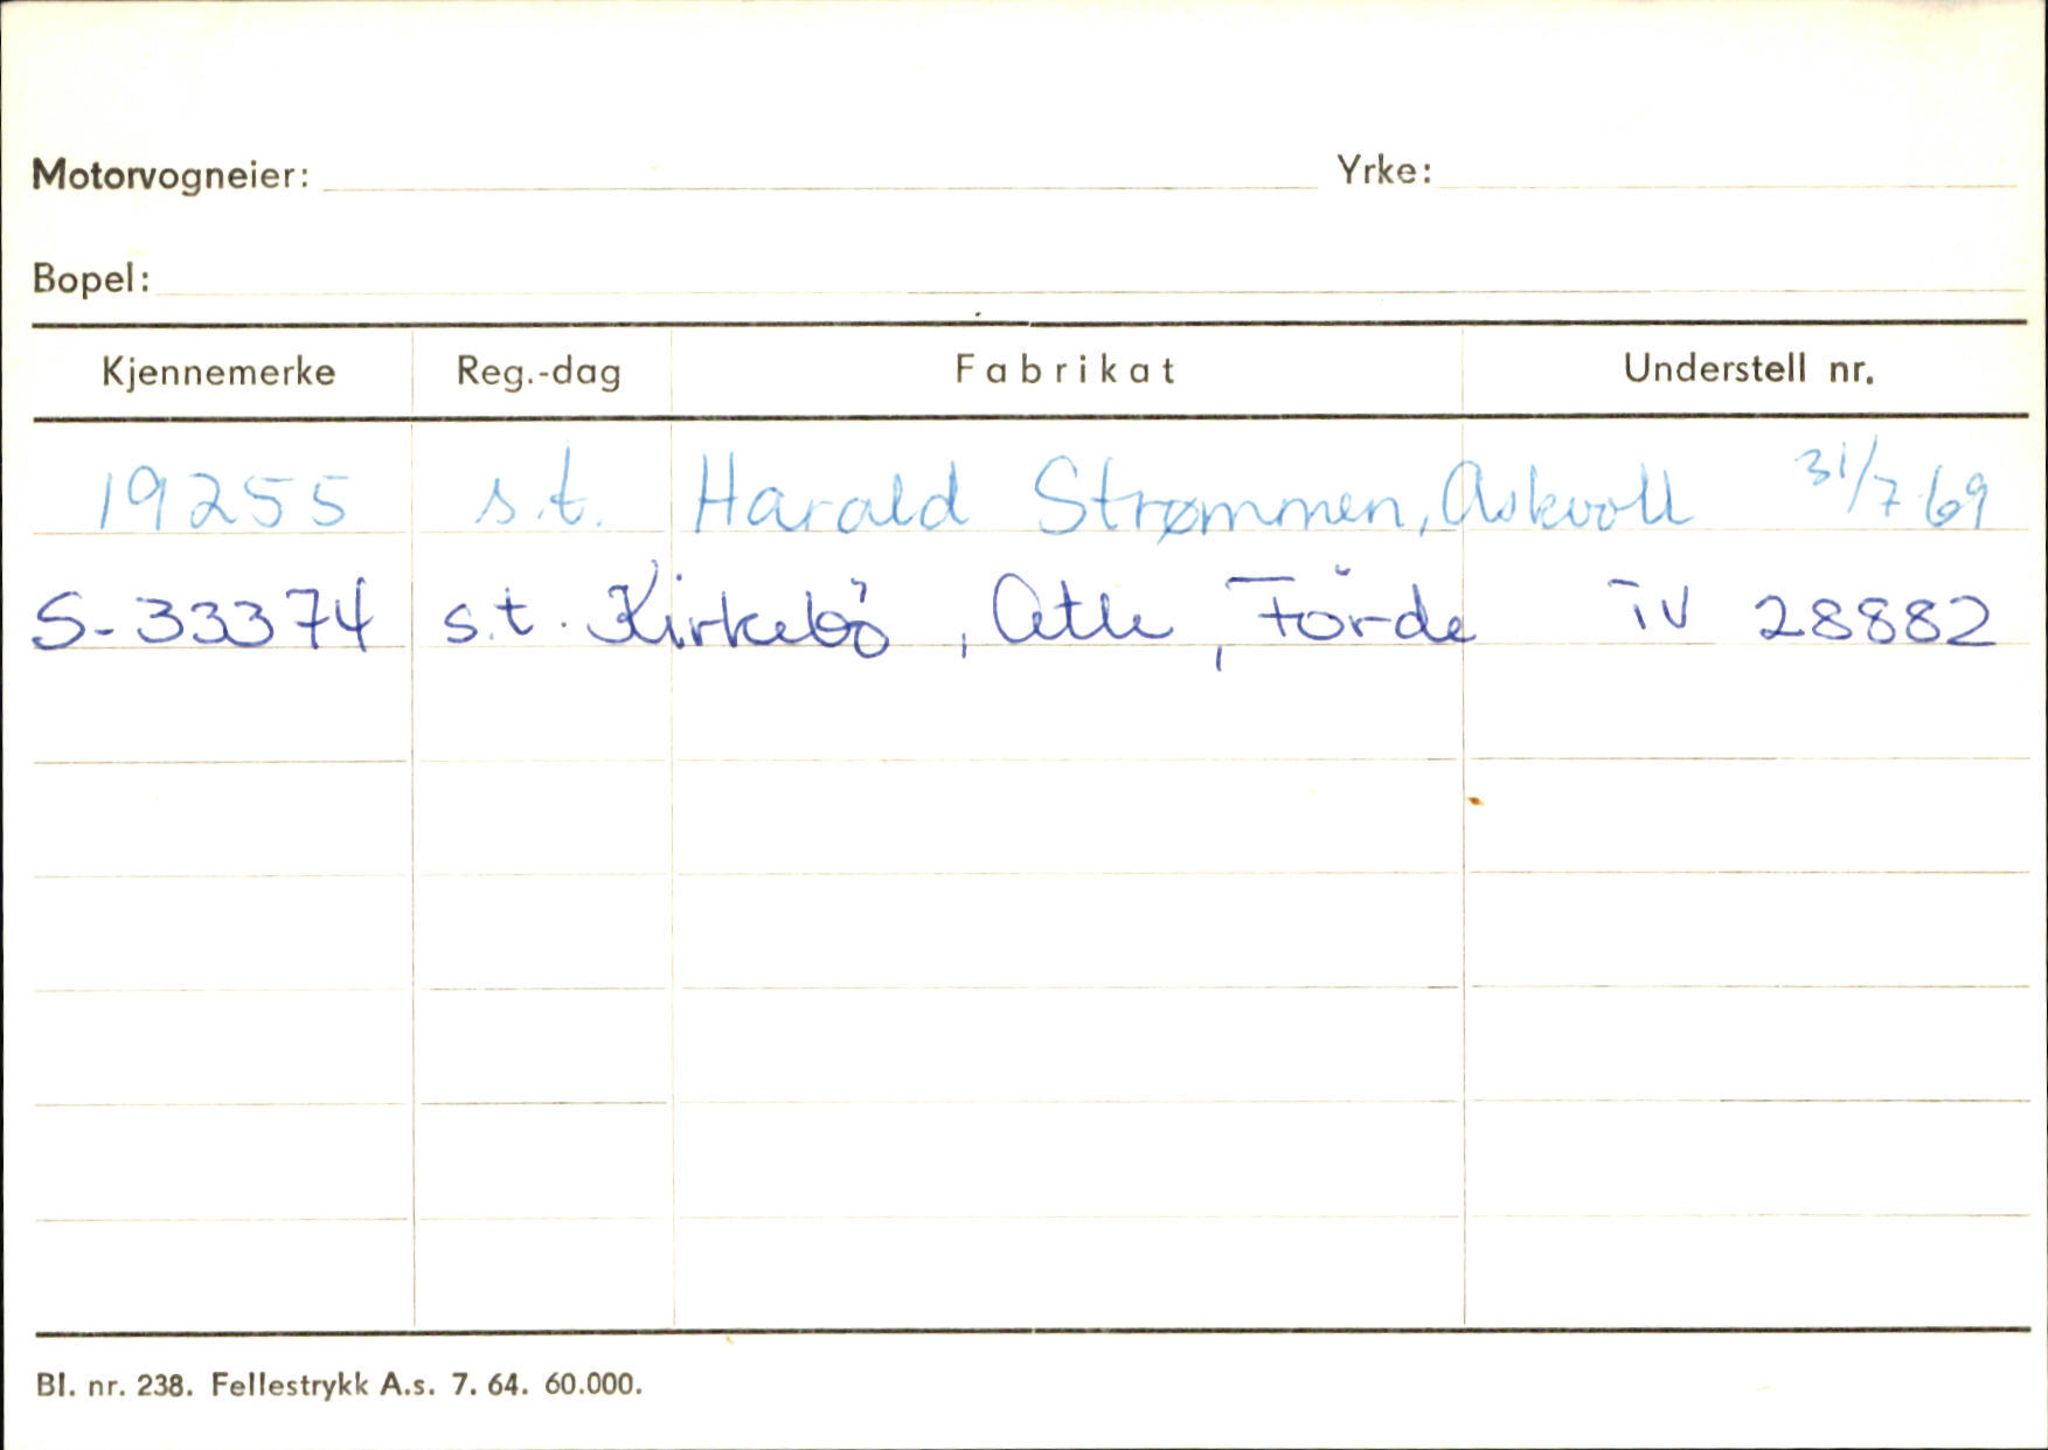 Motorvogneier: Yrke:
Bopel:
Kjennemerke Reg.-dag Fabrikat Understell nr.
19255 s.t. Harald Strømmen, Askvoll 31/7 69
S-33374 s.t. Kirkebö, Atle, Förde TV 28882
Bl. nr. 238. Fellestrykk A.s. 7. 64. 60.000.